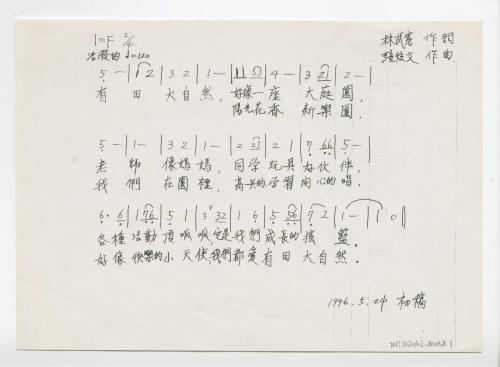 1=F 2/4
活潑的 ♩=120
林武憲 作詞
張炫文 作曲
5 — | 1 2 | 3 2 | 1 — | 11 53 | 4 — | 3 21 | 2 — |
有 田 大自然, 好像一座 大庭園,
陽光花香 新樂園,
5 — | 1 — | 3 2 | 1 — | 2 23 | 2 1 | 7 66 | 5 — |
老 師 像媽媽, 同学玩具 好伙伴,
我 們 在園裡, 高兴的学習 開心的唱.
6· 6 | 1 76 | 5 1 | 3 32 | 1 6 | 5 56 | 7 2 | 1 — | 1 0 ‖
各種活動頂呱呱,它是我們成長的搖籃.
好像快樂的小天使,我們都愛有田大自然.
1996.5.24 初稿